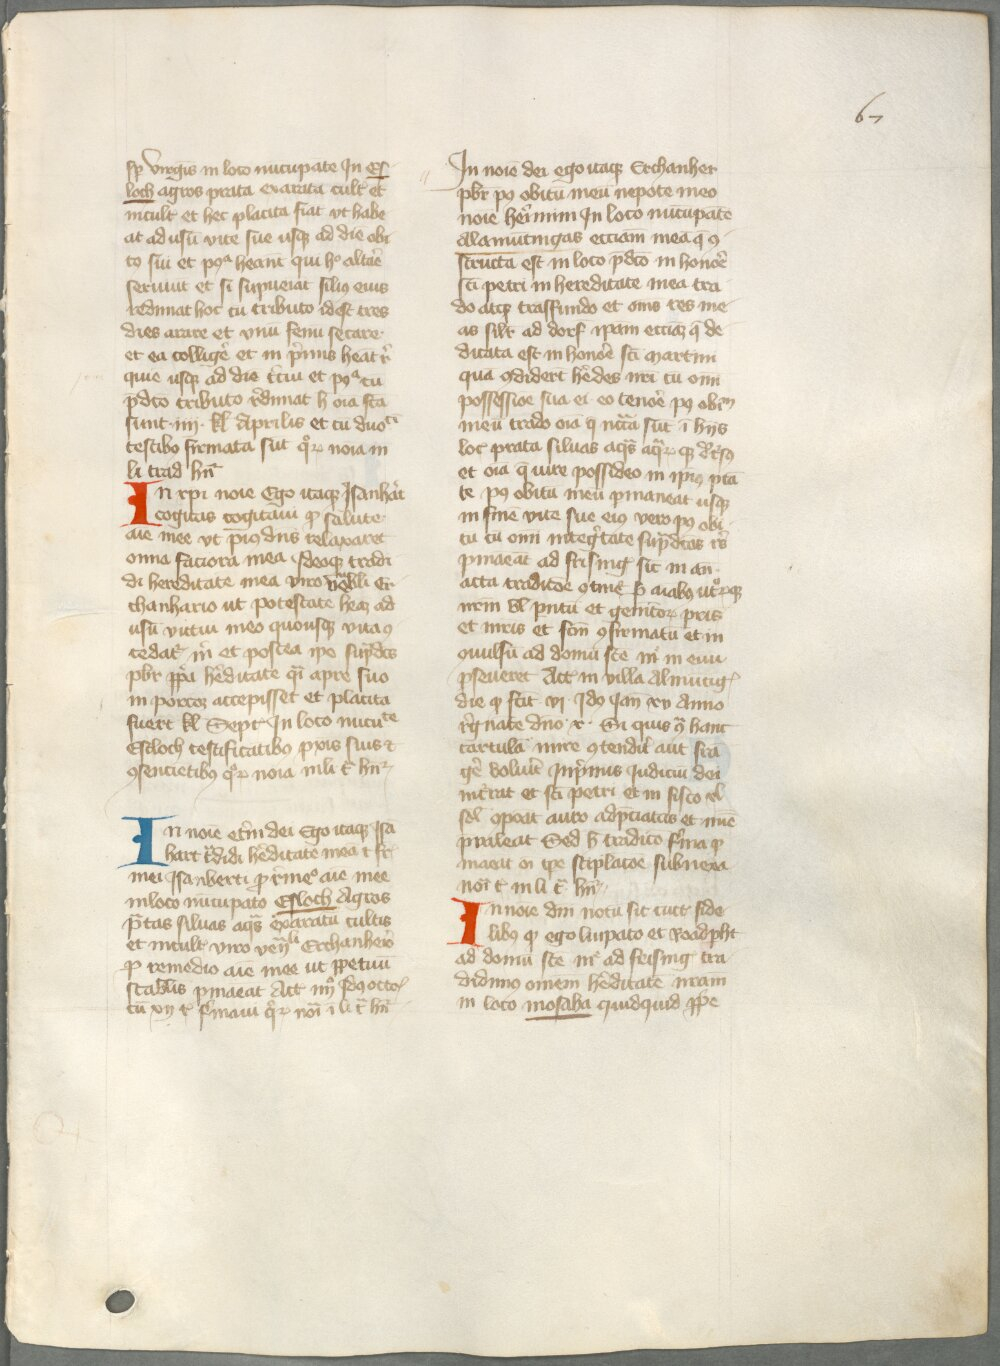 67
sp̄ virgīs in loco nūcupate In Es
loch agros prata exarata cult̄ et
incult̄ et hec placita fiat vt habe
at ad usū vite sue usq̨ ad die obi
to sui et pꝰᵃ heant qui hͦ altar̄e
seruiūt et si supueiat filiꝰ eius
redimat hoc cū tributo idest tres
dies arare et vnū fenū secare
et ea colligē et in p̄mis heāt r̄
quie usq̨ ad die t̄ciū et pꝰᵃ cū
p̄dc̄o tributo r̄dimat h̄ oīa sc̄a
sunt iiij kl̄ Aprilis et cū duo
testibꝰ firmata sūt qͦꝝ noīa in
li trad hn̄t
In xpi noīe Ego itaq̨ Isanhar̄t
cogitās cogitāui ꝓ salute
aīe mee vt piꝰ dn̄s relaxaret
omnia faciora mea Ideoq̨ tradi
di hereditate mea viro vēbili Er
chanhario ut potestate heat ad
usū victui meo quousq̨ vita ꝯ
cedat̄ m̄ et postea ip̄e sup̄dc̄s
pbr̄ p̄pā he̅ditate qͣi apre suo
in porcōꝫ accepisset et placita
fuer̄t kl̄ Sept̄ In loco nūcuᵗᵉ
Esloch testificatibꝰ p̄xis suis ⁊
ꝯsencietibꝰ qͦꝝ noīa in li t̄ hn̄t
In noīe et̄ni dei Ego itaq̨ Isa
hart t̄didi he̅ditate mea ⁊ fr̄
mei Isanberti ꝓ r̄meͦ aīe mee
in loco nūcupato Esloch Agros
p̄tas siluas aqͣs exaratū cultis
et incult̄ viro vēnˡⁱ Erchanherͦ
ꝓ remedio aīe mee ut ꝑpetuū
stabilis ꝑmaeat Act̄ iiijͦ Idꝰ octo
cū xij ⁊ f̄maui qͦꝝ noī ī li t̄ hn̄t
In noīe dei ego itaq̨ Erchanher
pbr̄ pꝰ obitū meū nepote meo
noīe Her̄mini In loco nūcupate
Alamuntingas ecciam mea q̄ ꝯ
structa est in loco p̄dc̄o in honor̄e
sc̄i petri in hereditate mea tra
do atq̨ trasfundo et om̄s res me
as silr̄ ad dorf ipam ecciaꝫ q̄ de
dicata est in honor̄e sc̄i Martini
quā ꝯdider̄t he̅des nr̄i cū om̄i
possessioe sua ei eo tenor̄e pꝰ obiᵐ
meū trado oīa q̄ nc̄ta sūt ī hijs
loc̄ prata siluas aqͣs aqͣꝝ q̨ dc̄rsꝰ
et oīa q̄ iure possideo in ipīꝰ ptā
te pꝰ obitū meū ꝑmaneat usq̨
in finē vite sue eiꝰ vero pꝰ obi
tū cū om̄i integͥtate sup̄dc̄as rˢ
ꝑmaeāt ad frising sic in an
acta tradicōe ꝯtinet̄ ꝓ aīabꝰ utͦꝝq̨
nr̄m vl̄ pntū et genitoꝝ pris
et mr̄is et sc̄m ꝯfirmatū et in
ꝯuulsū ad domū sc̄e mͥ in euū
ꝑseueret Act̄ in villa Almūtig
die ꝙ fec̄it vj Idꝰ Ian̄ xv Anno
r̄gnāte dn̄o r̄ Si quis qͣ hanc
cartulā inire ꝯtendit̄ aut fra
gē voluīt Inp̄mis Iudiciū dei
incͥrat et sc̄i petri et in fisco vl̄
sol̄ ꝯpōat auro adp̄ciatas et inīe
p̄ualeat Sed h̄ tradicō f̄ma ꝑ
maeat oī tp̄e stiplatoē subnexa
noī t̄ in li t̄ hn̄t
In noīe dni notū sit cūct̄ fide
libꝰ ꝙ ego liupato et Roadpht
ad domū sc̄e mͥ ad frising tra
didimꝰ om̄em he̅ditatē nr̄am
in loco mosaha quidquid ꝓp̄e